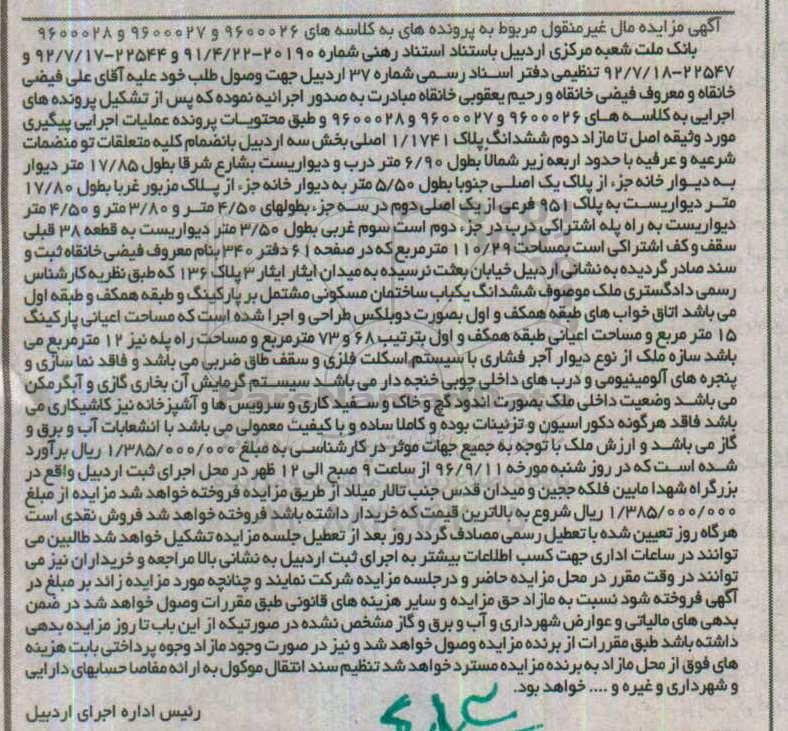 آگهی مزایده مال غیرمنقول مربوط به پرونده های به کلاسه های ۹۶۰۰۰۲۶ و ۹۶۰۰۰۲۷ و ۹۶۰۰۰۲۸
بانک ملت شعبه مرکزی اردبیل باستناد استناد رهنی شماره ۲۰۱۹۰-۹۱/۴/۲۲ و ۲۲۵۴۴-۹۲/۷/۱۷ و
۲۲۵۴۷-۹۲/۷/۱۸ تنظیمی دفتر اسناد رسمی شماره ۳۷ اردبیل جهت وصول طلب خود علیه آقای علی فیضی
خانقاه و معروف فیضی خانقاه و رحیم یعقوبی خانقاه مبادرت به صدور اجرائیه نموده که پس از تشکیل پرونده های
اجرایی به کلاسه های ۹۶۰۰۰۲۶ و ۹۶۰۰۰۲۷ و ۹۶۰۰۰۲۸ و طبق محتویات پرونده عملیات اجرایی پیگیری
مورد وثیقه اصل تا مازاد دوم ششدانگ پلاک ۱/۱۷۴۱ اصلی بخش سه اردبیل بانضمام کلیه متعلقات تو منضمات
شرعیه و عرفیه با حدود اربعه زیر شمالا بطول ۶/۹۰ متر درب و دیواریست بشارع شرقا بطول ۱۷/۸۵ متر دیوار
به دیوار خانه جزء از پلاک یک اصلی جنوبا بطول ۵/۵۰ متر به دیوار خانه جزء از پلاک مزبور غربا بطول ۱۷/۸۰
متر دیواریست به پلاک ۹۵۱ فرعی از یک اصلی دوم در سه جزء بطولهای ۴/۵۰ متر و ۳/۸۰ متر و ۴/۵۰ متر
دیواریست به راه پله اشتراکی درب در جزء دوم است سوم غربی بطول ۳/۵۰ متر دیواریست به قطعه ۳۸ قبلی
سقف و کف اشتراکی است بمساحت ۱۱۰/۲۹ مترمربع که در صفحه ۶۱ دفتر ۳۴۰ بنام معروف فیضی خانقاه ثبت و
سند صادر گردیده به نشانی اردبیل خیابان بعثت نرسیده به میدان ایثار ایثار ۳ پلاک ۱۳۶ که طبق نظریه کارشناس
رسمی دادگستری ملک موصوف ششدانگ یکباب ساختمان مسکونی مشتمل بر پارکینگ و طبقه همکف و طبقه اول
می باشد اتاق خواب های طبقه همکف و اول بصورت دوبلکس طراحی و اجرا شده است که مساحت اعیانی پارکینگ
۱۵ متر مربع و مساحت اعیانی طبقه همکف و اول بترتیب ۶۸ و ۷۳ مترمربع و مساحت راه پله نیز ۱۲ مترمربع می
باشد سازه ملک از نوع دیوار آجر فشاری با سیستم اسکلت فلزی و سقف طاق ضربی می باشد و فاقد نما سازی و
پنجره های آلومینیومی و درب های داخلی چوبی خنجه دار می باشد سیستم گرمایش آن بخاری گازی و آبگرمکن
می باشد وضعیت داخلی ملک بصورت اندود گچ و خاک و سفید کاری و سرویس ها و آشپزخانه نیز کاشیکاری می
باشد فاقد هرگونه دکوراسیون و تزئینات بوده و کاملا ساده و با کیفیت معمولی می باشد با انشعابات آب و برق و
گاز می باشد و ارزش ملک با توجه به جمیع جهات موثر در کارشناسی به مبلغ ۱/۳۸۵/۰۰۰/۰۰۰ ریال برآورد
شده است که در روز شنبه مورخه ۹۶/۹/۱۱ از ساعت ۹ صبح الی ۱۲ ظهر در محل اجرای ثبت اردبیل واقع در
بزرگراه شهدا مابین فلکه ججین و میدان قدس جنب تالار میلاد از طریق مزایده فروخته خواهد شد مزایده از مبلغ
۱/۳۸۵/۰۰۰/۰۰۰ ریال شروع به بالاترین قیمت که خریدار داشته باشد فروخته خواهد شد فروش نقدی است
هرگاه روز تعیین شده با تعطیل رسمی مصادف گردد روز بعد از تعطیل جلسه مزایده تشکیل خواهد شد طالبین می
توانند در ساعات اداری جهت کسب اطلاعات بیشتر به اجرای ثبت اردبیل به نشانی بالا مراجعه و خریداران نیز می
توانند در وقت مقرر در محل مزایده حاضر و درجلسه مزایده شرکت نمایند و چنانچه مورد مزایده زائد بر مبلغ در
آگهی فروخته شود نسبت به مازاد حق مزایده و سایر هزینه های قانونی طبق مقررات وصول خواهد شد در ضمن
بدهی های مالیاتی و عوارض شهرداری و آب و برق و گاز مشخص نشده در صورتیکه از این باب تا روز مزایده بدهی
داشته باشد طبق مقررات از برنده مزایده وصول خواهد شد و نیز در صورت وجود مازاد وجوه پرداختی بابت هزینه
های فوق از محل مازاد به برنده مزایده مسترد خواهد شد تنظیم سند انتقال موکول به ارائه مفاصا حسابهای دارایی
و شهرداری و غیره و .... خواهد بود.
رئیس اداره اجرای اردبیل